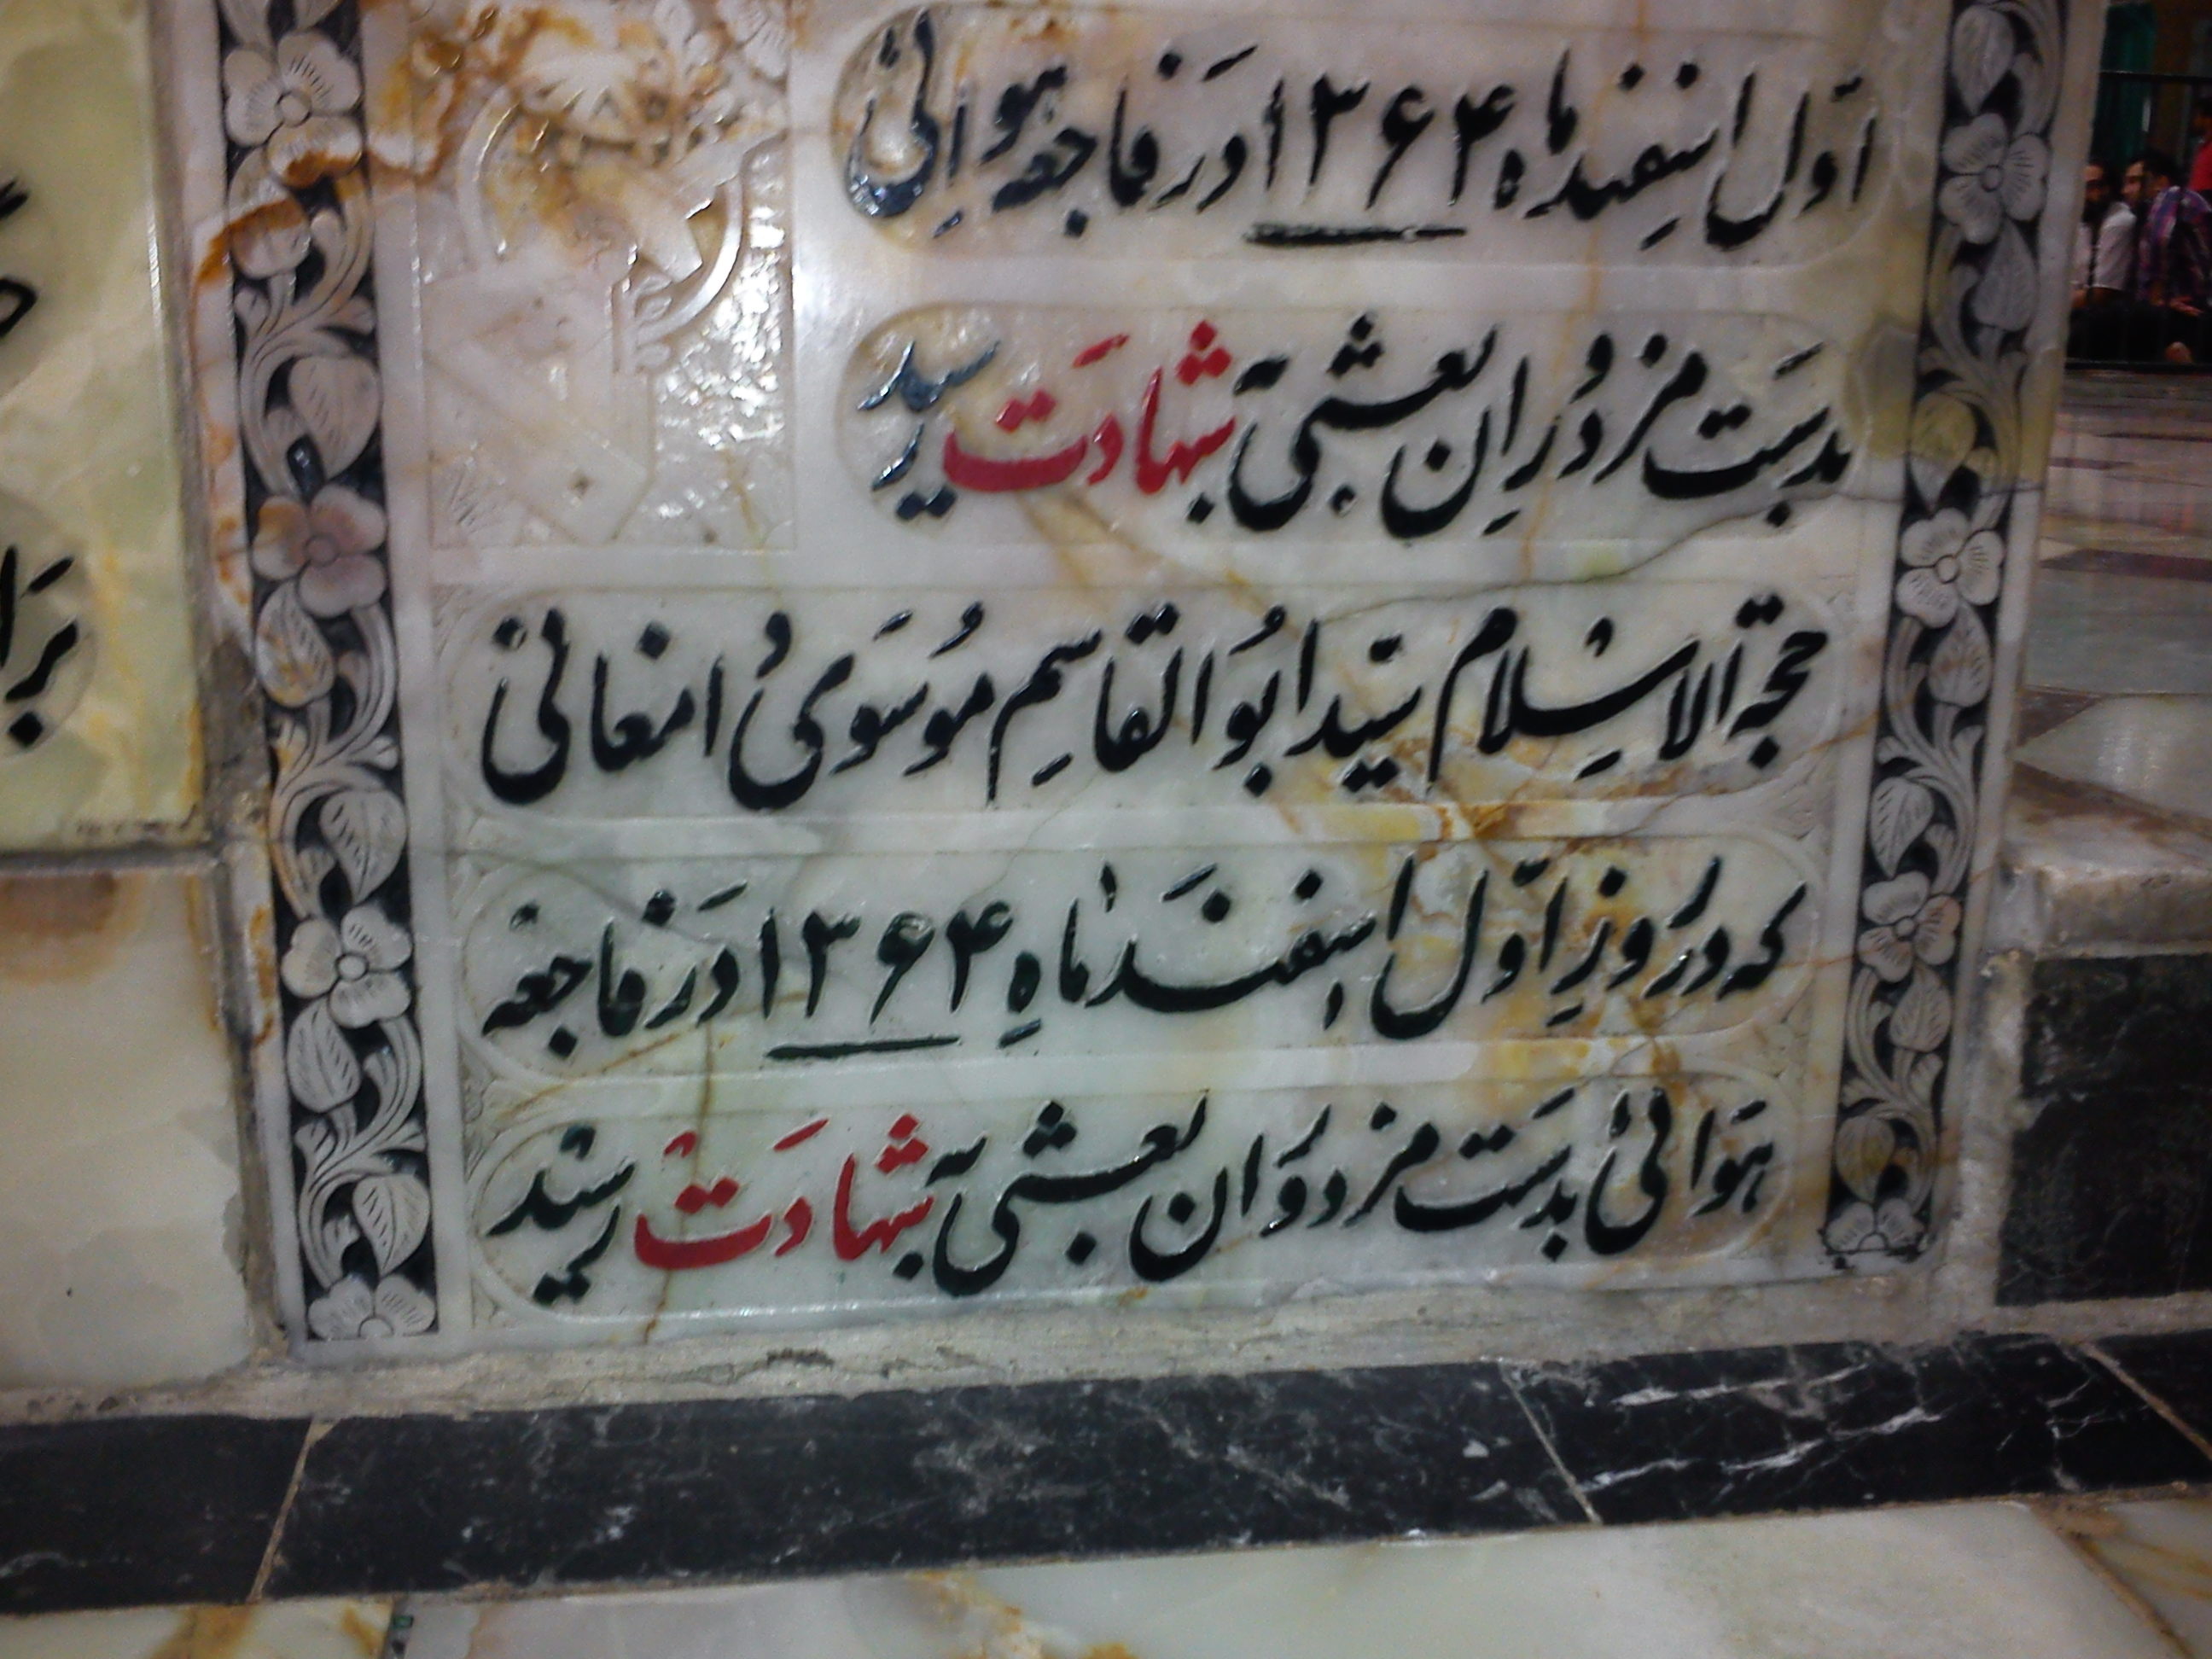 اول اسفند ماه ۱۳۶۴ در فاجعه هوائی
بدست مزدوران بعثی به شهادت رسید
حجة الاسلام سید ابوالقاسم موسوی دامغانی
که در روز اول اسفند ماه ۱۳۶۴ در فاجعه
هوائی بدست مزدوران بعثی به شهادت رسید